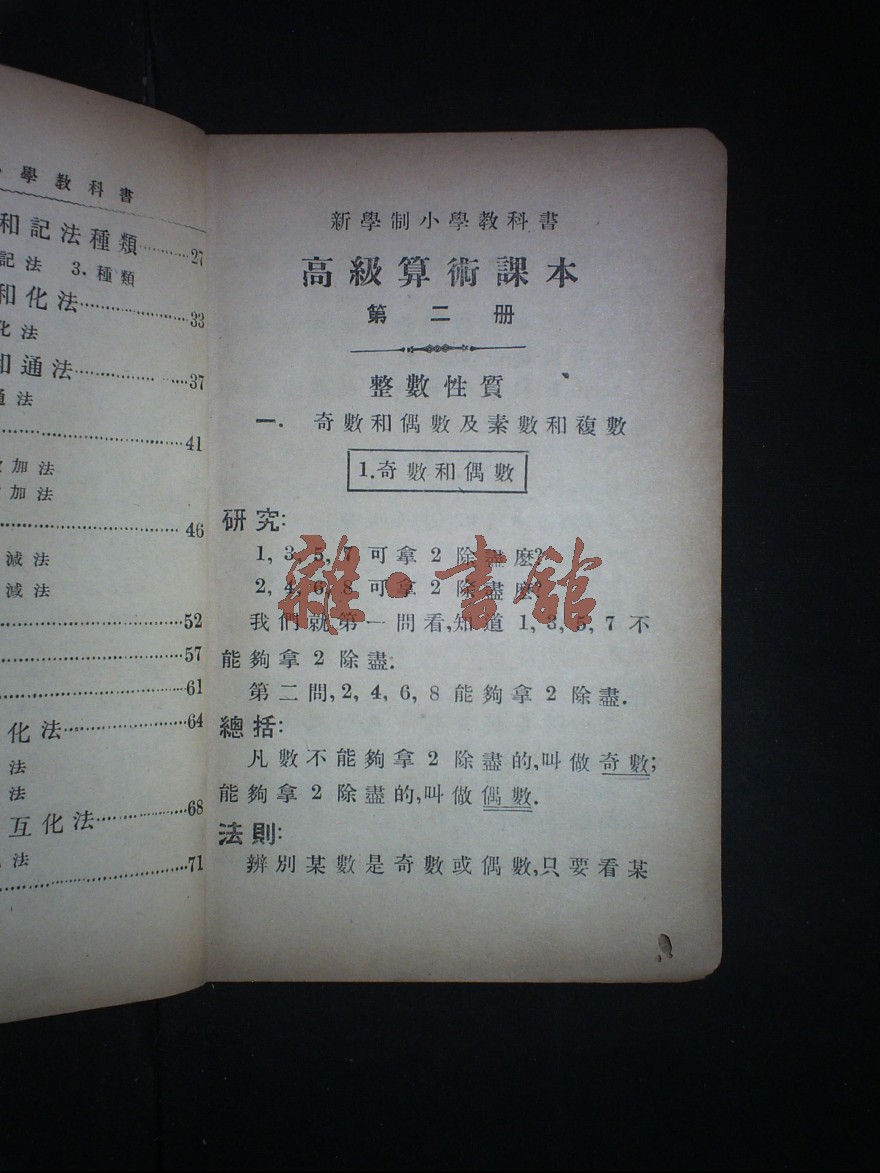 學教科書
和記法種類……27
記法 3. 種類
和化法……33
化法
和通法……37
通法
……41
加法
加法
……46
減法
減法
……52
……57
……61
化法……64
法
法
互化法……68
法
……71
新學制小學教科書
高級算術課本
第二册
整數性質
一. 奇數和偶數及素數和複數
1.奇數和偶數
研究:
1, 3, 5, 7 可拿 2 除盡麽?
2, 4, 6, 8 可拿 2 除盡麽?
我們就第一問看,知道 1, 3, 5, 7 不
能夠拿 2 除盡.
第二問, 2, 4, 6, 8 能夠拿 2 除盡.
總括:
凡數不能夠拿 2 除盡的,叫做奇數;
能夠拿 2 除盡的,叫做偶數.
法則:
辨別某數是奇數或偶數,只要看某
雜·書館